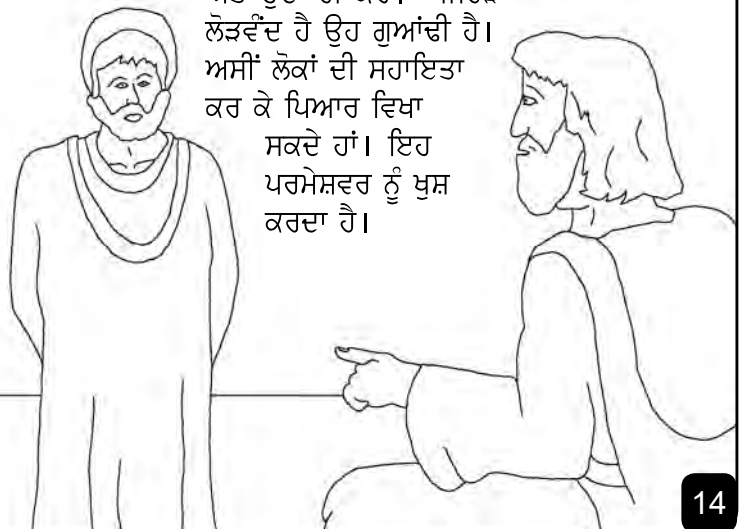 ਲੋੜਵੰਦ ਹੈ ਉਹ ਗੁਆਂਢੀ ਹੈ।
ਅਸੀਂ ਲੋਕਾਂ ਦੀ ਸਹਾਇਤਾ
ਕਰ ਕੇ ਪਿਆਰ ਵਿਖਾ
ਸਕਦੇ ਹਾਂ। ਇਹ
ਪਰਮੇਸ਼ਵਰ ਨੂੰ ਖੁਸ਼
ਕਰਦਾ ਹੈ।
14